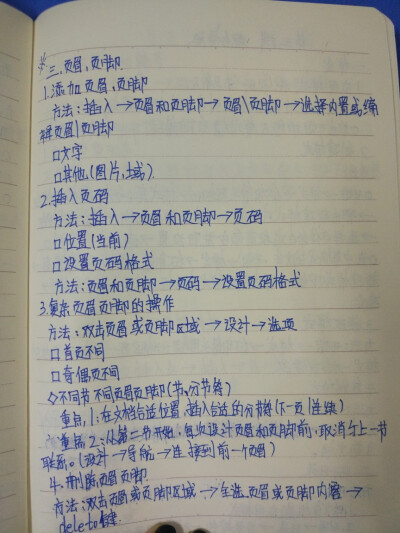 *三.页眉,页脚
1.添加页眉,页脚
方法:插入→页眉和页脚→页眉\页脚→选择内置或编
辑页眉|页脚
□文字
□其他(图片,域)
2.插入页码
方法:插入→页眉和页脚→页码
□位置(当前)
□设置页码格式
方法:页眉和页脚→页码→设置页码格式
3.复杂页眉页脚的操作
方法:双击页眉或页脚区域→设计→选项
□首页不同
□奇偶页不同
◇不同节不同页眉页脚(节,分节符)
重点1:在文档合适位置,插入合适的分节符(下一页|连续)
重点2:从第二节开始,每次设计页眉和页脚前,取消与上一节
联系。(设计→导航→连接到前一个页眉)
4.删除页眉页脚
方法:双击页眉或页脚区域→全选页眉或页脚内容→
delete键.